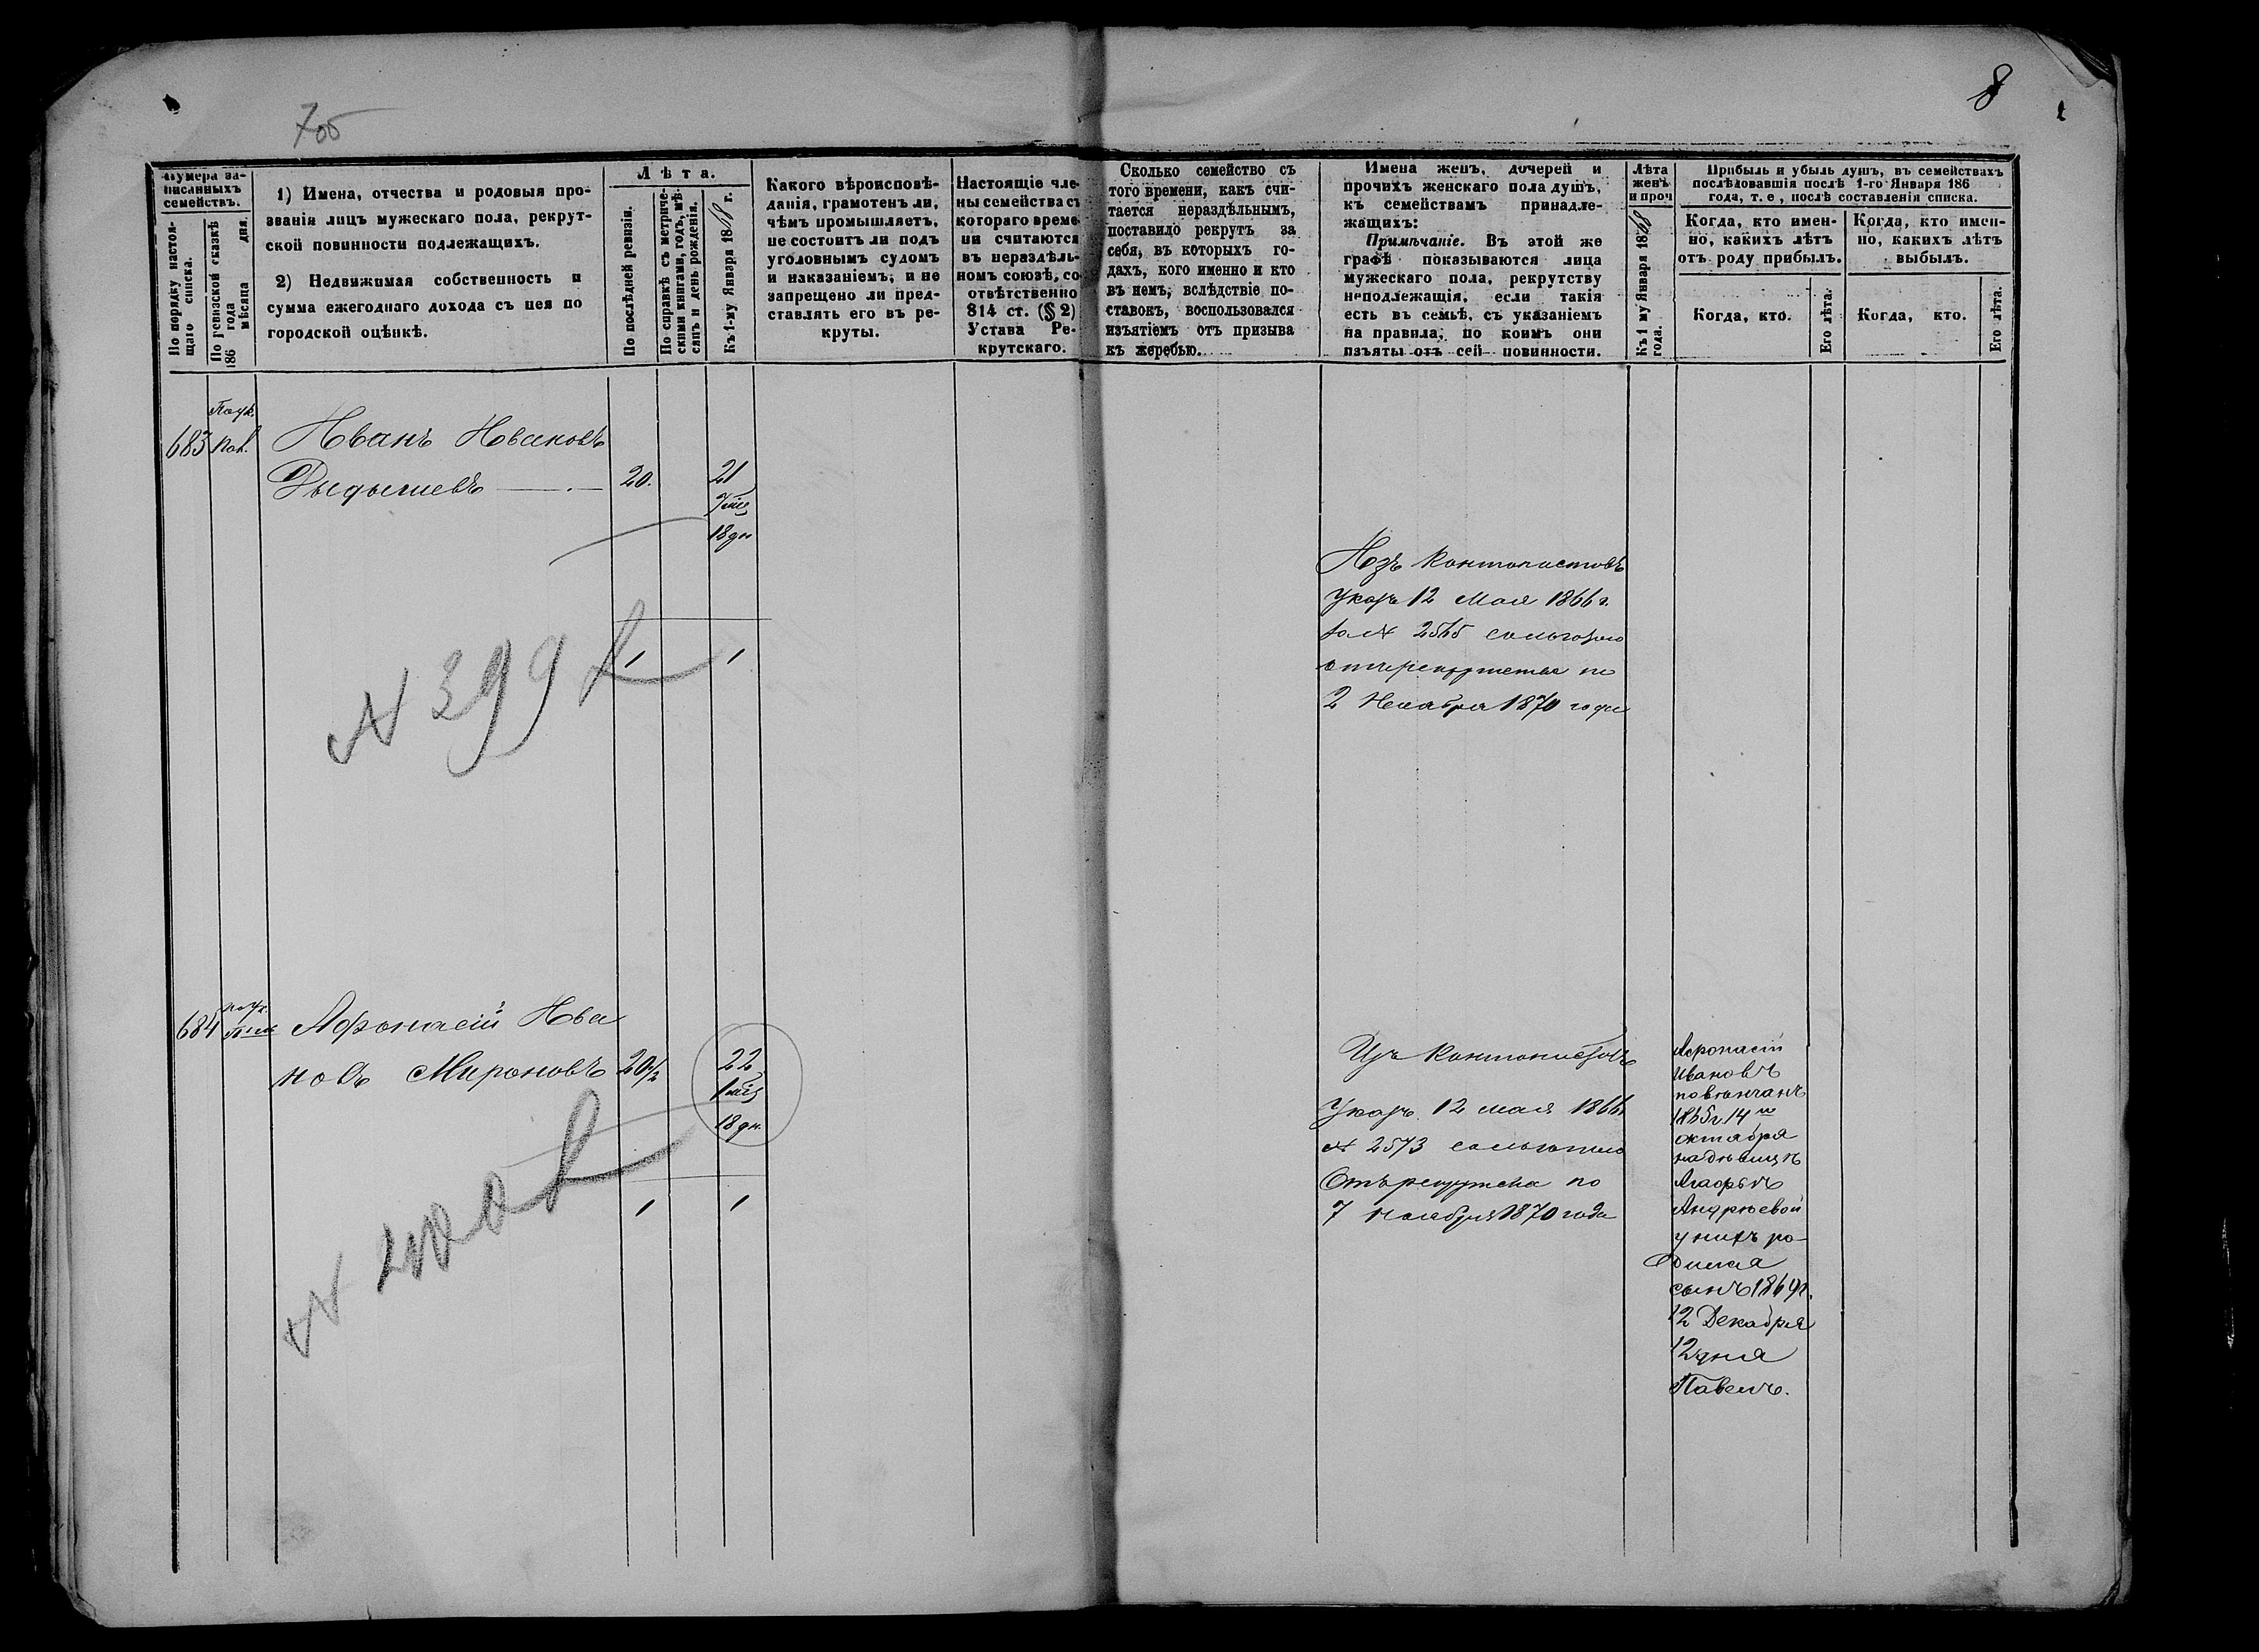 7об
8
Нумера за-
писанныхъ
семействъ.
По порядку настоя-
щаго списка.
По ревизской сказкѣ
186 года
мѣсяца дня.
1) Имена, отчества и родовыя про-
званія лицъ мужескаго пола, рекрут-
ской повинности подлежащихъ.
2) Недвижимая собственность и
сумма ежегоднаго дохода съ нея по
городской оцѣнкѣ.
Лѣта.
По послѣдней ревизіи.
По справкѣ съ метриче-
скими книгами, годъ, мѣ-
сяцъ и день рожденія.
Къ 1-му Января 1868 г.
Какого вѣроисповѣ-
данія, грамотенъ ли,
чѣмъ промышляетъ,
не состоитъ ли подъ
уголовнымъ судомъ
и наказаніемъ, и не
запрещено ли пред-
ставлять его въ ре-
круты.
Настоящіе чле-
ны семейства съ
котораго време-
ни считаются
въ нераздѣль-
номъ союзѣ, со-
отвѣтственно
814 ст. (§ 2)
Устава Ре-
крутскаго.
Сколько семейство съ
того времени, какъ счи-
тается нераздѣльнымъ,
поставило рекрутъ за
себя, въ которыхъ го-
дахъ, кого именно и кто
въ немъ, вслѣдствіе по-
ставокъ, воспользовался
изъятіемъ отъ призыва
къ жеребью.
Имена женъ, дочерей и
прочихъ женскаго пола душъ,
къ семействамъ принадле-
жащихъ:
Примѣчаніе. Въ этой же
графѣ показываются лица
мужескаго пола, рекрутству
неподлежащія, если такія
есть въ семьѣ, съ указаніемъ
на правила, по коимъ они
изъяты отъ сей повинности.
Лѣта
женъ
и проч
Къ 1 му Января 1868
года.
Прибыль и убыль душъ, въ семействахъ
послѣдовавшія послѣ 1-го Января 186
года, т. е, послѣ составленія списка.
Когда, кто имен-
но, какихъ лѣтъ
отъ роду прибылъ.
Когда, кто.
Его лѣта.
Когда, кто имен-
но, какихъ лѣтъ
выбылъ.
Когда, кто.
Его лѣта.
683
Иванъ Ивановъ
20.
21
7 мѣс
18 дн
1 1
N 399
Изъ Кантонистовъ
Указъ 12 Мая 1866 г.
за N
2 Ноября 1870 года
684
Афонасій Ива
новъ Мироновъ
20½
22
1 мѣс
18 дн.
1 1
N 400
Изъ Кантонистовъ
Указъ 12 мая 1866
N 2573
7 Ноября 1870 года
Афонасій
Ивановъ
повѣнчанъ
14
октября
на дѣвицѣ
Агафьѣ
Андрѣевой
у нихъ ро-
дился
сынъ 1869г.
12 Декабря
12 дня
Павелъ.